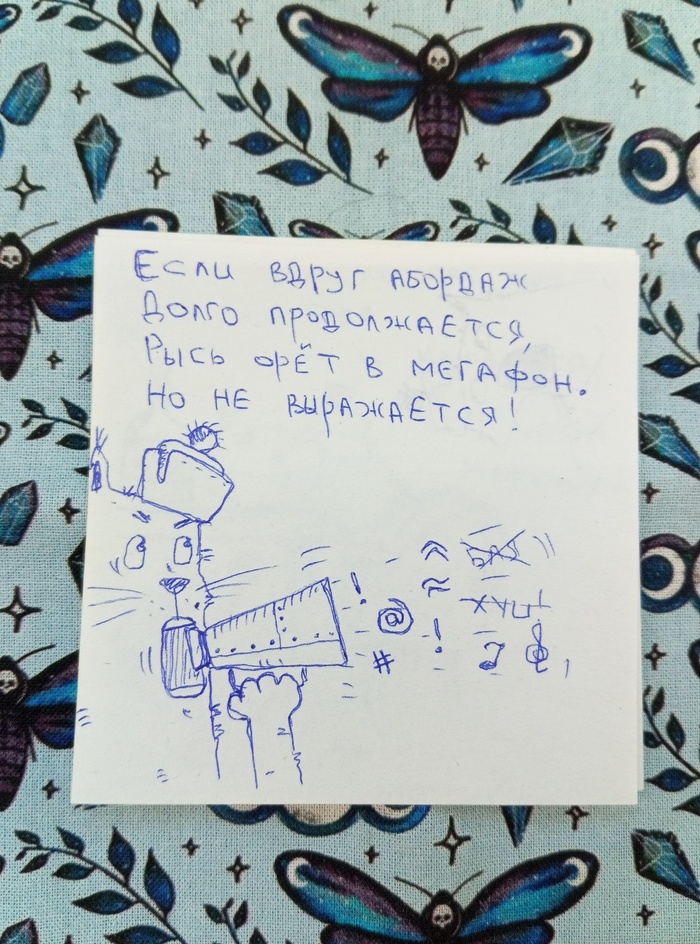 Если вдруг абордаж
Долго продолжается,
Рысь орёт в мегафон.
Но не выражается!
! @ #
!